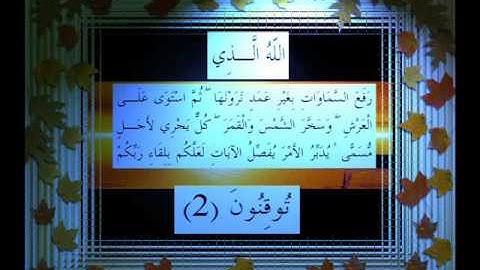 اللَّهُ الَّــذِي
رَفَعَ السَّمَاوَاتِ بِغَيْرِ عَمَدٍ تَرَوْنَهَا ۖ ثُمَّ اسْتَوَى عَلَــى
الْعَرْشِ ۖ وَسَخَّرَ الشَّمْسَ وَالْقَمَرَ ۖ كُلٌّ يَجْرِي لأَجَلٍ
مُّسَمًّى ۚ يُدَبِّرُ الأَمْرَ يُفَصِّلُ الآيَاتِ لَعَلَّكُم بِلِقَاءِ رَبِّكُمْ
تُوقِنُونَ (2)